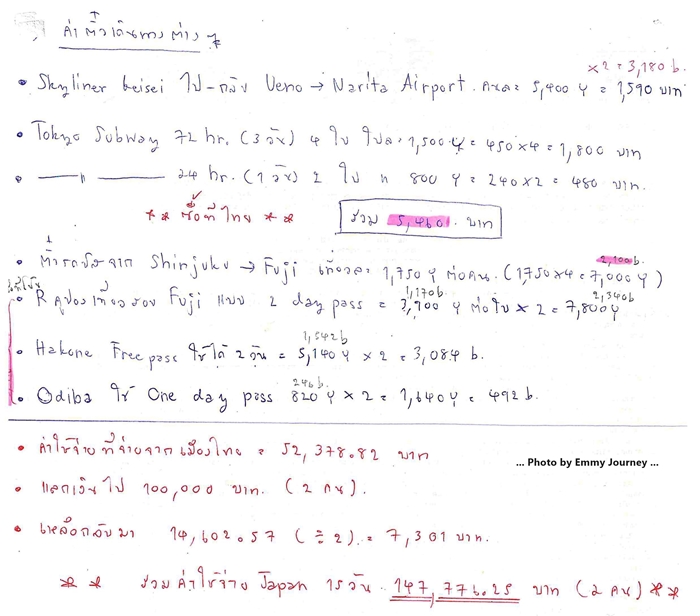 ค่าตั๋วเดินทางต่างๆ
x2 = 3,180 b.
• Skyliner keisei ไป-กลับ Ueno → Narita Airport. คนละ 5,400 ¥ = 1,590 บาท
• Tokyo Subway 72 hr. (3 วัน) 4 ใบ ใบละ 1,500 ¥ = 450x4 = 1,800 บาท
• —— " —— 24 hr. (1 วัน) 2 ใบ " 800 ¥ = 240x2 = 480 บาท.
** ซื้อที่ไทย ** รวม 5,460 บาท
2,100 b.
• ตั๋วรถบัสจาก Shinjuku → Fuji เที่ยวละ 1,750 ¥ ต่อคน. (1,750x4 = 7,000 ¥)
1,170 b. 2,340 b
เที่ยวรอบ Fuji แบบ 2 day pass = 3,900 ¥ ต่อใบ x 2 = 7,800 ¥
1,542 b
• Hakone Free pass ใช้ได้ 2 วัน = 5,140 ¥ x 2 = 3,084 b.
246 b.
• Odiba ใช้ One day pass 820 ¥ x 2 = 1,640 ¥ = 492 b.
• ค่าใช้จ่ายที่จ่ายจากเมืองไทย = 52,378.82 บาท
... Photo by Emmy Journey ...
• แลกเงินไป 100,000 บาท. (2 คน).
• เหลือกลับมา 14,602.57 (÷ 2) = 7,301 บาท.
** รวมค่าใช้จ่าย Japan 15 วัน 147,776.25 บาท (2 คน) **